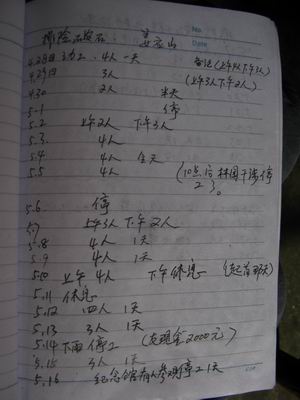 排险石发石 姜家山
No.
Date
4.28日动工. 4人 一天 备注(上午4人下午3人)
4.29日 3人 (上午3人下午2人)
4.30 2人 半天
5.1 停
5.2 上午2人 下午3人
5.3 4人
5.4 4人 全天
5.5 4人 (10点后林国干涉停
工)。
5.6 停
5.7 上午3人 下午2人
5.8 4人 1天
5.9 4人 1天
5.10 上午4人 下午休息
5.11 休息
5.12 四人 1天
5.13 3人 1天
5.14 下雨停工 (支现金2000元)
5.15 3人 1天
5.16 纪念馆有人参观停工1天